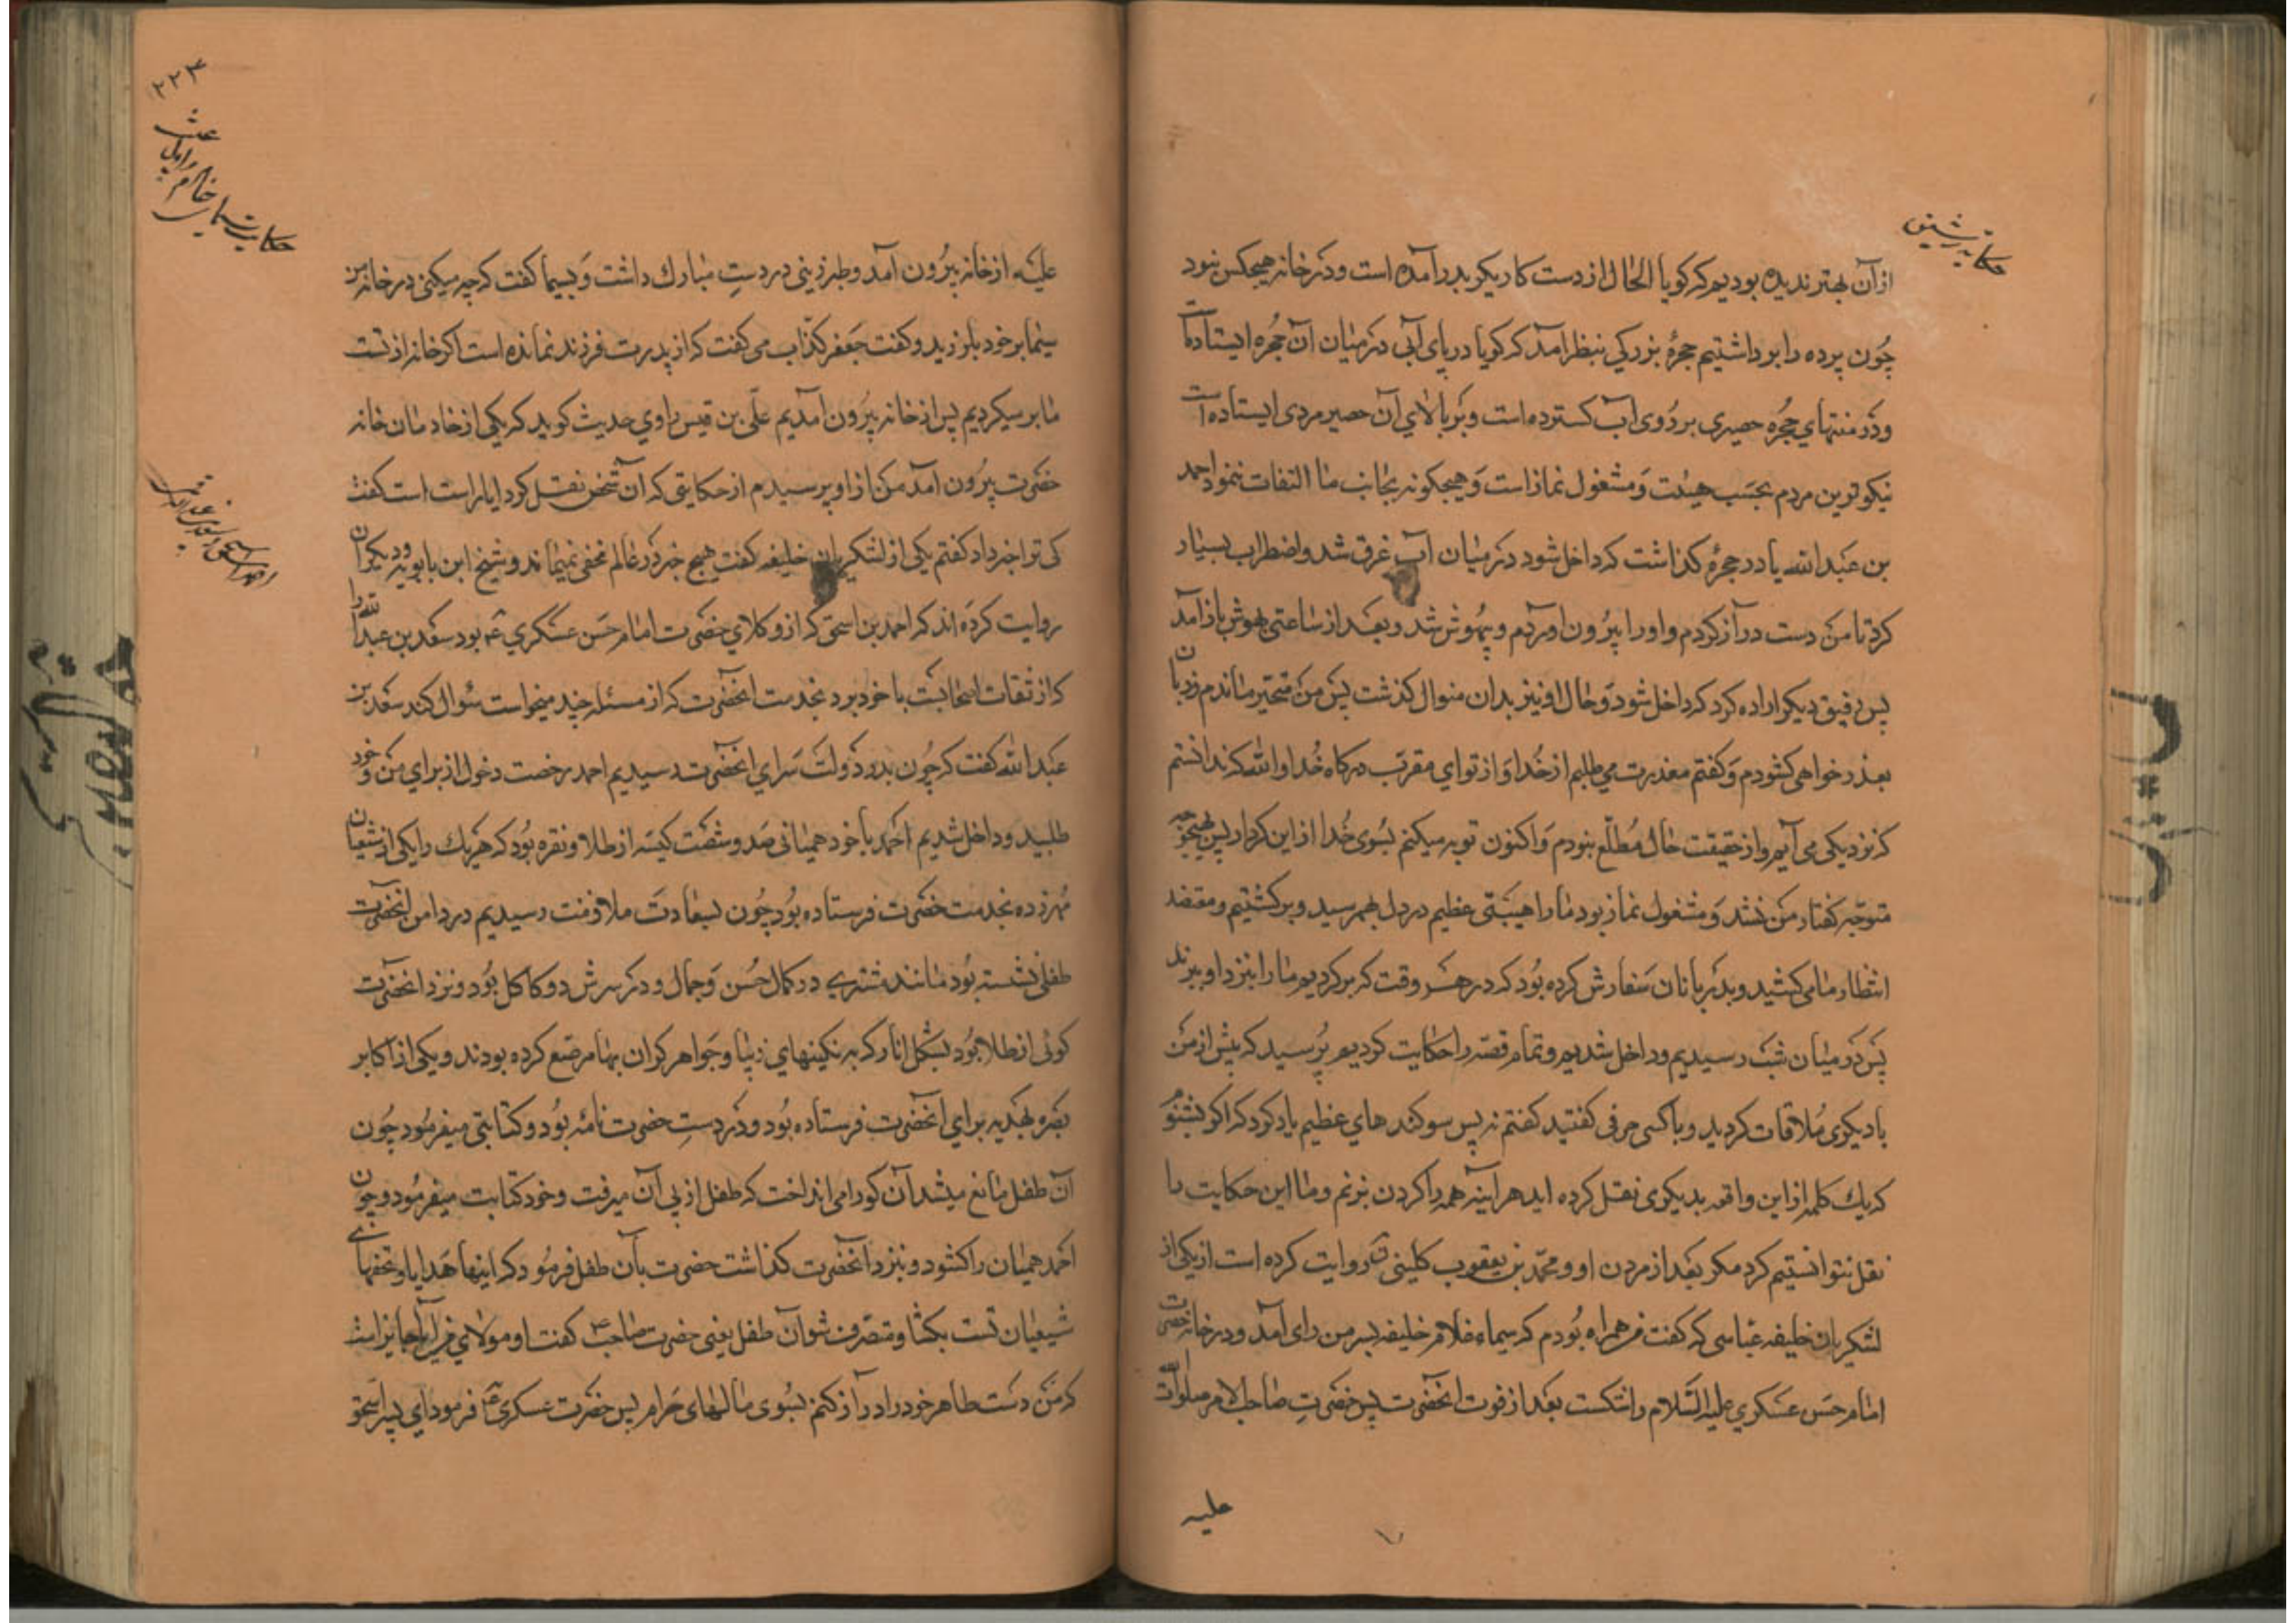 حکایت رشیق
از آن بهتر ندیده بودیم که کویا الحال از دست کاریکر بدر آمده است و در خانه هیچکس نبود
چون پرده را برداشتیم حجرهٔ بزرکی بنظر آمد که کویا دریای آبی در میان آن حجره ایستاده است
و در منتهای حجره حصیری بر روی آب کسترده است و بر بالای آن حصیر مردی ایستاده است
نیکوترین مردم بحسب هیئت و مشغول نماز است و هیچکونه بجانب ما التفات ننمود احمد
بن عبدالله پا در حجره کذاشت که داخل شود در میان آب غرق شد و اضطراب بسیار
کرد تا من دست دراز کردم و او را بیرون اوردم و بیهوش شد و بعد از ساعتی بهوش باز آمد
پس رفیق دیکر اراده کرد که داخل شود و حال او نیز بدان منوال کذشت پس من متحیر ماندم و زبان
بعذر خواهی کشودم و کفتم معذرت می طلبم از خدا و از تو ای مقرب درکاه خدا والله که ندانستم
که نزد کی می آیم و از حقیقت حال مطلع نبودم و اکنون توبه میکنم بسوی خدا از این کردار پس بهیچوجه
متوجه کفتار من نشد و مشغول نماز بود ما را هیبتی عظیم در دل بهم رسید و برکشتیم و معتضد
انتظار ما می کشید و بدربانان سفارش کرده بود که در هر وقت که برکردیم ما را بنزد او برند
پس در میان شب رسیدیم و داخل شدیم و تمام قصه را حکایت کردیم پرسید که پیش از من
با دیکری ملاقات کردید و با کسی حرفی کفتید کفتم نه پس سوکندهای عظیم یاد کرد که اکر بشنوم
که یك کلمه از این واقعه بدیکری نقل کرده اید هر آینه همه را کردن بزنم و ما این حکایت را
نقل نتوانستیم کرد مکر بعد از مردن او و محمد بن یعقوب کلینی روایت کرده است از یکی از
لشکریان خلیفه عباسی که کفت من همراه بودم که سیماء غلام خلیفه بسر من رای آمد و در خانه حضرت
امام حسن عسکری علیه السلام را شکست بعد از فوت انحضرت پس حضرت صاحب الامر صلوات الله
علیه
۲۲۳
حکایت سیمای خادم
احمد اسحق و سعد بن عبدالله
علیه از خانه بیرون آمد و طبرزینی در دست مبارك داشت و بسیما کفت که چه میکنی در خانه من
سیما بر خود بلرزید و کفت جعفر کذاب می کفت که از پدرت فرزند نمانده است اکر خانه از تست
ما بر میکردیم پس از خانه بیرون آمدیم علی بن قیس راوی حدیث کوید که یکی از خادمان خانه
حضرت بیرون آمد من از او پرسیدم از حکایتی که آن شخص نقل کرد ایا راست است کفت
کی ترا خبر داد کفتم یکی از لشکریان خلیفه کفت هیچ خبر در عالم مخفی نمیماند و شیخ ابن بابویه و دیکران
روایت کرده اند که احمد بن اسحق که از وکلای حضرت امام حسن عسکری ع بود سعد بن عبدالله را
که از ثقات اصحابست با خود برد بخدمت انحضرت که از مسئله چند میخواست سؤال کند سعد بن
عبدالله کفت که چون بدر دولت سرای انحضرت رسیدیم احمد رخصت دخول از برای من و خود
طلبید و داخل شدیم احمد با خود همیانی صد و شصت کیسه از طلا و نقره بود که هر یك را یکی از شیعیان
مهر زده بخدمت حضرت فرستاده بود چون بسعادت ملازمت رسیدیم در دامن انحضرت
طفلی نشسته بود مانند مشتری در کمال حسن و جمال و در سرش دو کاکل بود و نزد انحضرت
کوئی از طلا بود بشکل انار که به نکینهای زیبا و جواهر کران بها مرصع کرده بودند و یکی از اکابر
بصره بهدیه برای انحضرت فرستاده بود و در دست حضرت نامه بود و کتابتی میفرمود چون
آن طفل مانع میشد آن کو را می انداخت که طفل از پی آن میرفت و خود کتابت میفرمود و چون
احمد همیان را کشود و بنزد انحضرت کذاشت حضرت بآن طفل فرمود که اینها هدایا و تحفهای
شیعیان تست بکشا و متصرف شو آن طفل یعنی حضرت صاحب ع کفت او مولای من آیا جایز است
که من دست طاهر خود را دراز کنم بسوی مالهای حرام پس حضرت عسکری ع فرمود ای پسر اسحق